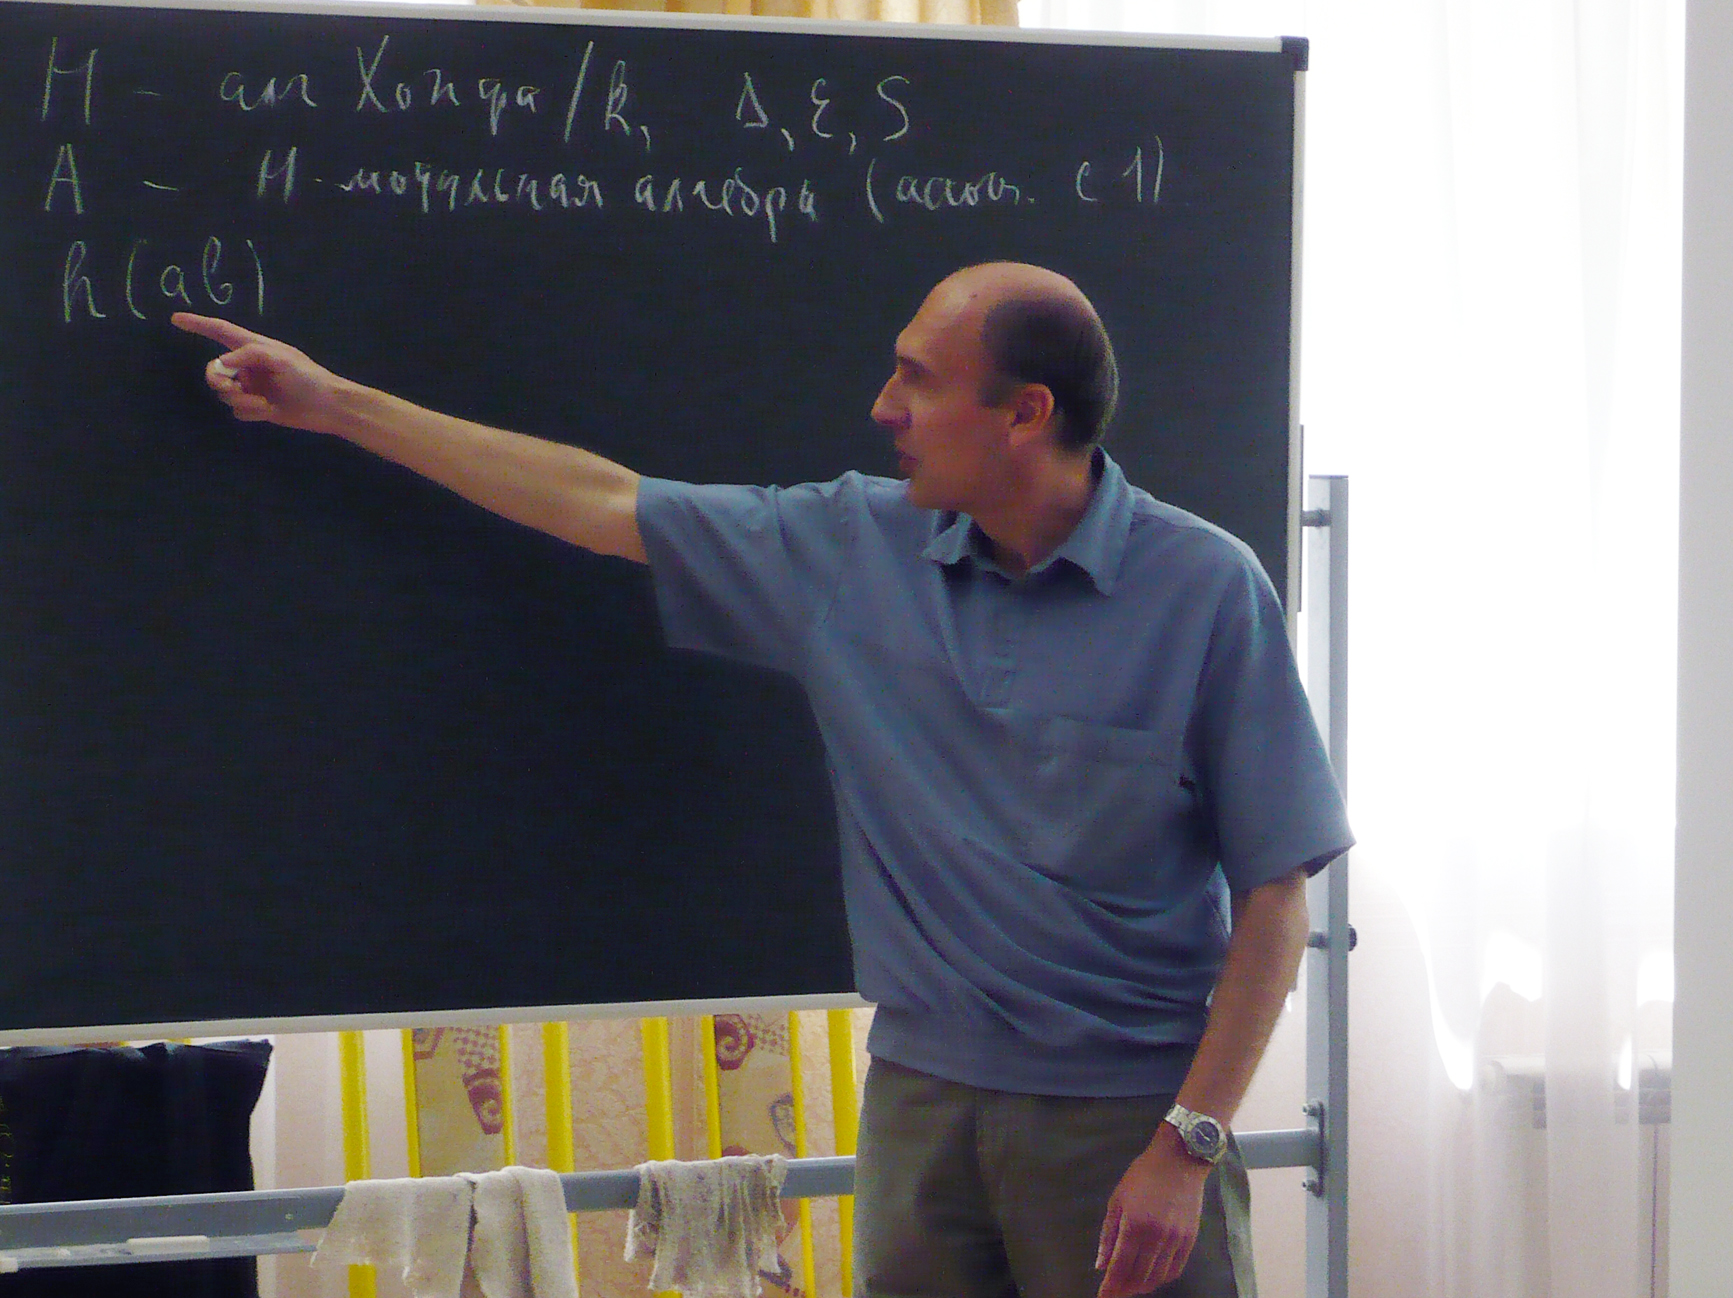 H - алг Хопфа/k, Δ, ε, S
A - H-модульная алгебра (ассоц. с 1)
h(ab)